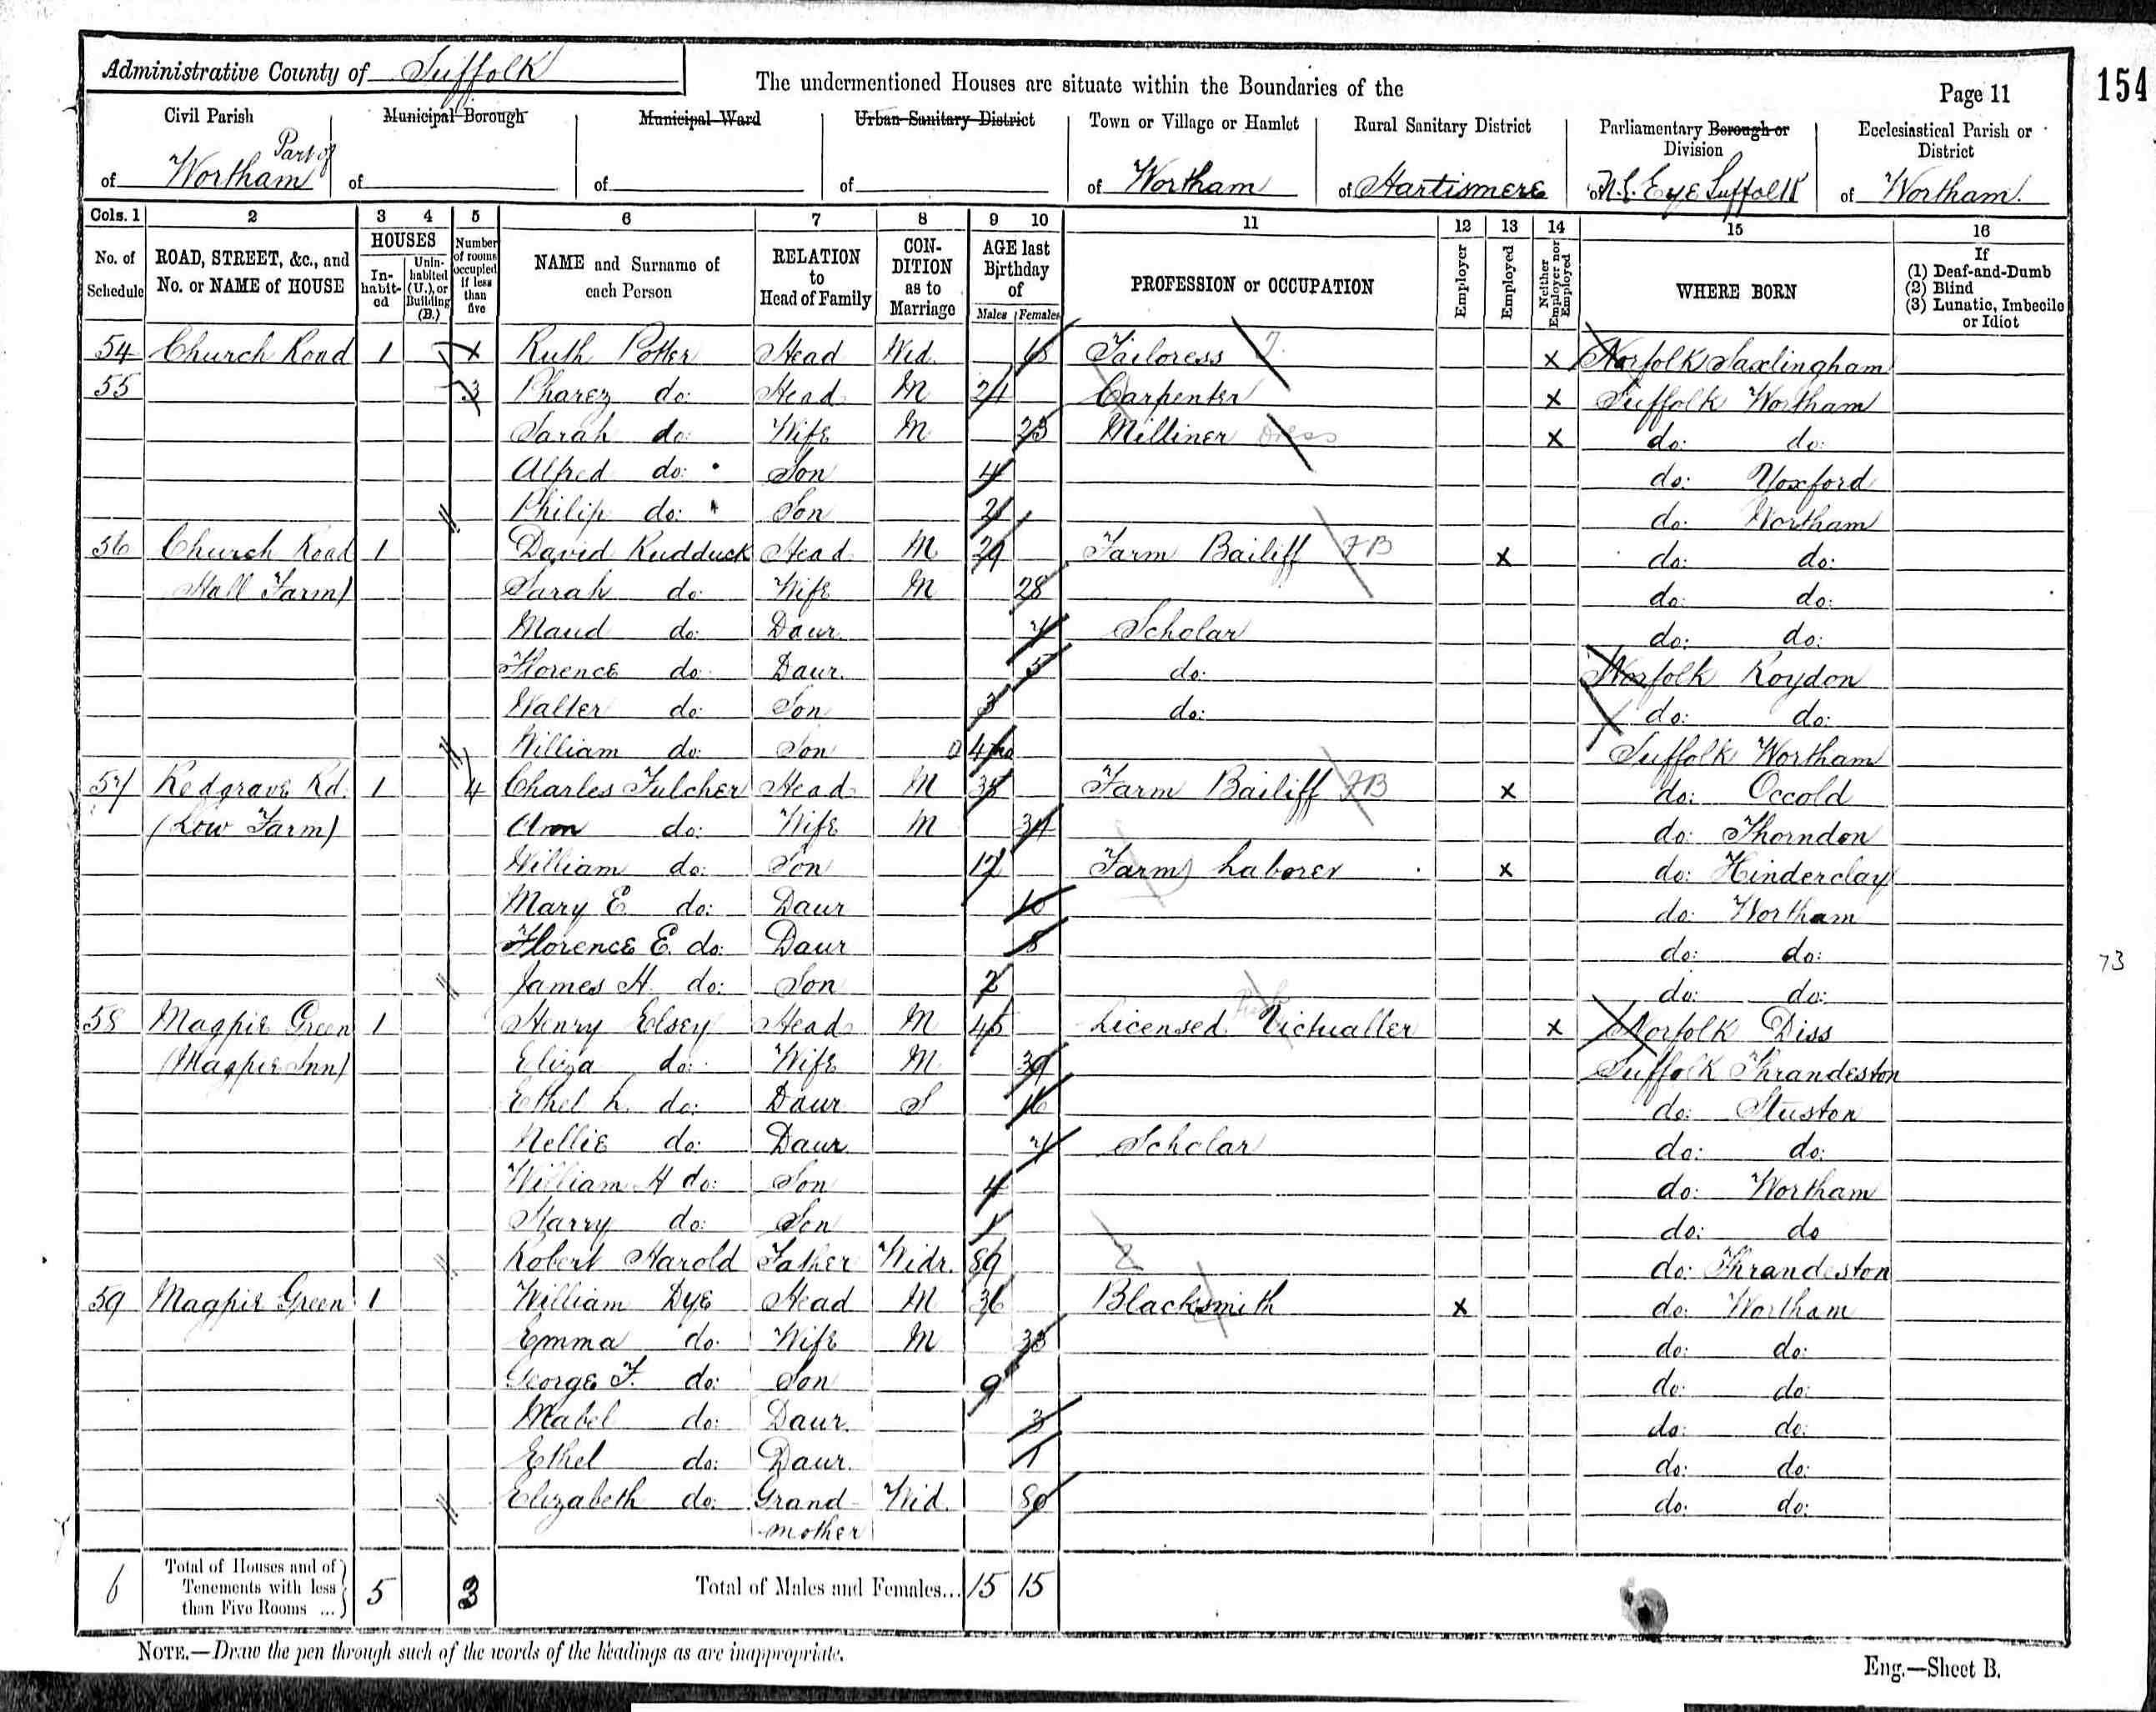 Administrative County of Suffolk
The undermentioned Houses are situate within the Boundaries of the
Page 11
154
Civil Parish
Municipal Borough
Municipal Ward
Urban Sanitary District
Town or Village or Hamlet
Rural Sanitary District
Parliamentary Borough or Division
Ecclesiastical Parish or District
of Part of Wortham
of
of
of
of Wortham
of Hartismere
of N.E. Eye Suffolk
of Wortham.
Cols. 1 2 3 4 5 6 7 8 9 10 11 12 13 14 15 16
No. of Schedule
ROAD, STREET, &c., and No. or NAME of HOUSE
HOUSES
In-habit-ed
Unin-habited (U.), or Building (B.)
Number of rooms occupied if less than five
NAME and Surname of each Person
RELATION to Head of Family
CON-DITION as to Marriage
AGE last Birthday of
Males Females
PROFESSION or OCCUPATION
Employer
Employed
Neither Employer nor Employed
WHERE BORN
If
(1) Deaf-and-Dumb
(2) Blind
(3) Lunatic, Imbecile or Idiot
54 Church Road 1 Ruth Potter Head Wid. Tailoress x Norfolk Saxlingham
55 3 Pharez do: Head M Carpenter x Suffolk Wortham
Sarah do: Wife M 23 Milliner Dress x do: do:
Alfred do: Son 4 do: Yoxford
Philip do: Son 2 do: Wortham
56 Church Road 1 David Rudduck Head M 29 Farm Bailiff FB x do: do:
Hall Farm) Sarah do: Wife M 28 do: do:
Maud do: Daur. 7 Scholar do: do:
Florence do: Daur. 5 do: Norfolk Roydon
Walter do: Son 3 do: do: do:
William do: Son 4mo Suffolk Wortham
57 Redgrave Rd. 1 4 Charles Fulcher Head M 35 Farm Bailiff FB x do: Occold
(Low Farm) Ann do: Wife M 34 do: Thorndon
William do: Son 17 Farm Laborer x do: Hinderclay
Mary E. do: Daur 10 do: Wortham
Florence E. do: Daur 8 do: do:
James H. do: Son 2 do: do:
73
58 Magpie Green 1 Henry Elsey Head M 45 Licensed Victualler x Norfolk Diss
(Magpie Inn) Eliza do: Wife M 39 Suffolk Thrandeston
Ethel L. do: Daur S 16 do: Stuston
Nellie do: Daur 7 Scholar do: do:
William H do: Son 4 do: Wortham
Harry do: Son 1 do: do
Robert Harold Father Widr. 89 do: Thrandeston
59 Magpie Green 1 William Dye Head M 36 Blacksmith x do: Wortham
Emma do: Wife M 33 do: do:
George F. do: Son 9 do: do:
Mabel do: Daur. 3 do: do:
Ethel do: Daur. 1 do: do:
Elizabeth do: Grand- Wid. 80 do: do:
mother
6 Total of Houses and of Tenements with less than Five Rooms ... 5 3 Total of Males and Females... 15 15
NOTE.—Draw the pen through such of the words of the headings as are inappropriate.
Eng.—Sheet B.